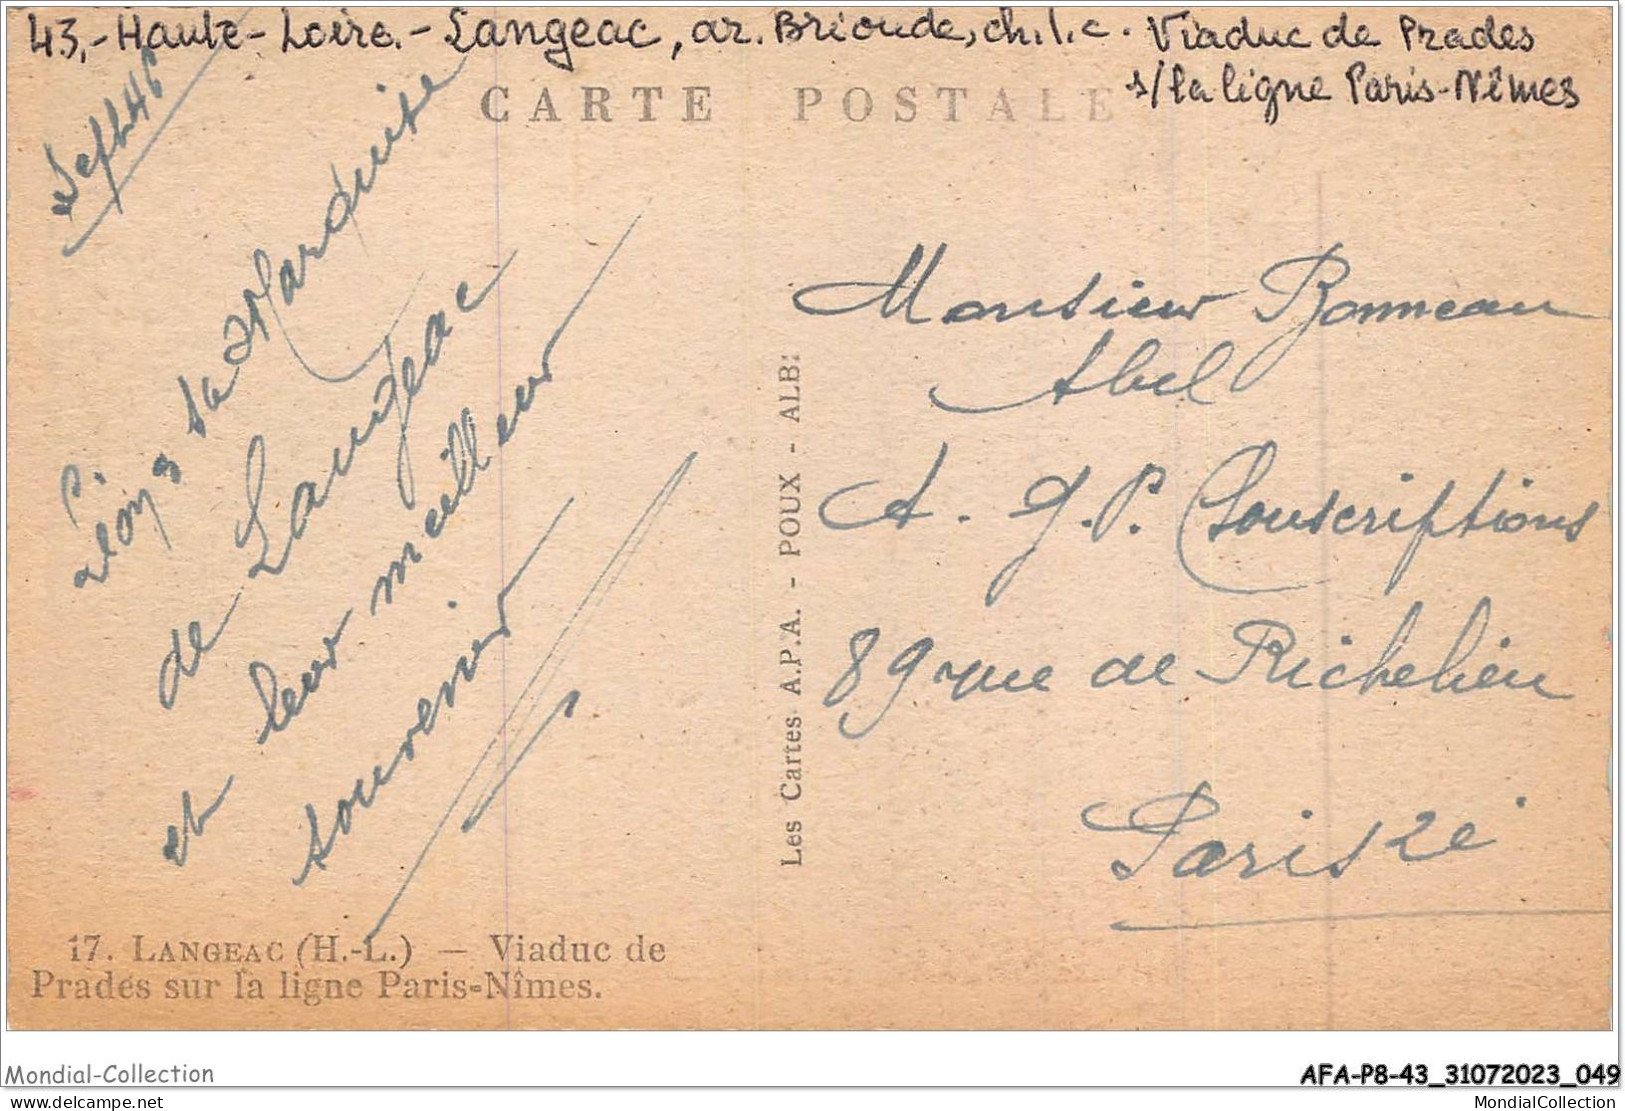 43.- Haute-Loire.- Langeac, ar. Brioude, ch. l. c. Viaduc de Prades
s/ la ligne Paris-Nîmes
CARTE POSTALE
Sept 46
de Langeac
et leur meilleur
souvenir
Monsieur Bonneau
Abel
A. G. P. Souscriptions
89 rue de Richelieu
Paris 2è
Les Cartes A.P.A. - POUX - ALBI
17. LANGEAC (H.-L.) — Viaduc de
Prades sur la ligne Paris-Nîmes.
Mondial-Collection
AFA-P8-43_31072023_049
delcampe.net
MondialCollection